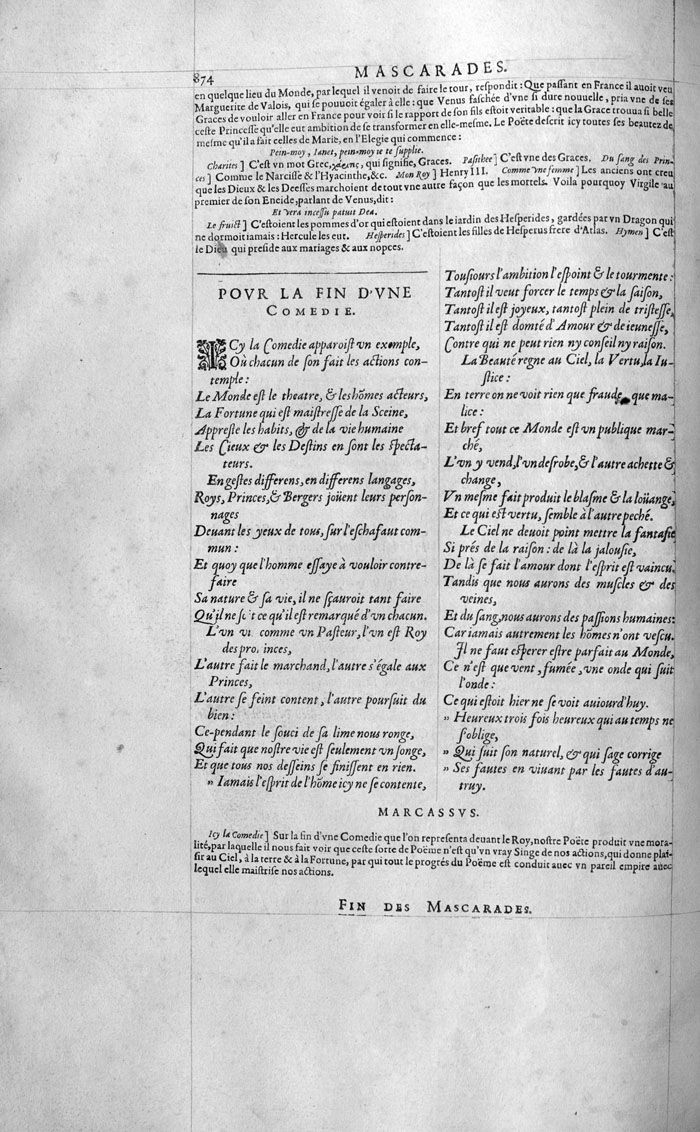 874
MASCARADES.
en quelque lieu du Monde, par lequel il venoit de faire le tour, respondit : Que passant en France il auoit veu
Marguerite de Valois, qui se pouuoit égaler à elle : que Venus faschée d'vne si dure nouuelle, pria vne de ses
Graces de vouloir aller en France pour voir si le rapport de son fils estoit veritable : que la Grace trouua si belle
ceste Princesse qu'elle eut ambition de se transformer en elle-mesme. Le Poëte descrit icy toutes ses beautez de
mesme qu'il a fait celles de Marie, en l'Elegie qui commence :
Pein-moy, Ianet, pein-moy ie te supplie.
Charites ] C'est vn mot Grec, χάριτες, qui signifie, Graces. Pasithee ] C'est vne des Graces. Du sang des Prin-
ces ] Comme le Narcisse & l'Hyacinthe, &c. Mon Roy ] Henry III. Comme vne femme ] Les anciens ont creu
que les Dieux & les Deesses marchoient de tout vne autre façon que les mortels. Voila pourquoy Virgile au
premier de son Eneide, parlant de Venus, dit :
Et vera incessu patuit Dea.
Le fruict ] C'estoient les pommes d'or qui estoient dans le iardin des Hesperides, gardées par vn Dragon qui
ne dormoit iamais : Hercule les eut. Hesperides ] C'estoient les filles de Hesperus frere d'Atlas. Hymen ] C'est
le Dieu qui preside aux mariages & aux nopces.
POVR LA FIN D'VNE
COMEDIE.
ICy la Comedie apparoist vn exemple,
Où chacun de son fait les actions con-
temple :
Le Monde est le theatre, & les hõmes acteurs,
La Fortune qui est maistresse de la Sceine,
Appreste les habits, & de la vie humaine
Les Cieux & les Destins en sont les specta-
teurs.
En gestes differens, en differens langages,
Roys, Princes, & Bergers joüent leurs person-
nages
Deuant les yeux de tous, sur l'eschafaut com-
mun :
Et quoy que l'homme essaye à vouloir contre-
faire
Sa nature & sa vie, il ne sçauroit tant faire
Qu'il ne soit ce qu'il est remarqué d'vn chacun.
L'vn vit comme vn Pasteur, l'vn est Roy
des prouinces,
L'autre fait le marchand, l'autre s'égale aux
Princes,
L'autre se feint content, l'autre poursuit du
bien :
Ce-pendant le souci de sa lime nous ronge,
Qui fait que nostre vie est seulement vn songe,
Et que tous nos desseins se finissent en rien.
» Iamais l'esprit de l'hõme icy ne se contente,
Tousiours l'ambition l'espoint & le tourmente :
Tantost il veut forcer le temps & la saison,
Tantost il est joyeux, tantost plein de tristesse,
Tantost il est domté d'Amour & de ieunesse,
Contre qui ne peut rien ny conseil ny raison.
La Beauté regne au Ciel, la Vertu, la Iu-
stice :
En terre on ne voit rien que fraude, que ma-
lice :
Et bref tout ce Monde est vn publique mar-
ché,
L'vn y vend, l'vn desrobe, & l'autre achette &
change,
Vn mesme fait produit le blasme & la loüange,
Et ce qui est vertu, semble à l'autre peché.
Le Ciel ne deuoit point mettre la fantasie
Si prés de la raison : de là la jalousie,
De là se fait l'amour dont l'esprit est vaincu.
Tandis que nous aurons des muscles & des
veines,
Et du sang, nous aurons des passions humaines :
Car iamais autrement les hõmes n'ont vescu.
Il ne faut esperer estre parfait au Monde,
Ce n'est que vent, fumée, vne onde qui suit
l'onde :
Ce qui estoit hier ne se voit auiourd'huy.
» Heureux trois fois heureux qui au temps ne
s'oblige,
» Qui suit son naturel, & qui sage corrige
» Ses fautes en viuant par les fautes d'au-
truy.
MARCASSVS.
Icy la Comedie ] Sur la fin d'vne Comedie que l'on representa deuant le Roy, nostre Poëte produit vne mora-
lité, par laquelle il nous fait voir que ceste sorte de Poëme n'est qu'vn vray Singe de nos actions, qui donne plai-
sir au Ciel, à la terre & à la Fortune, par qui tout le progrés du Poëme est conduit auec vn pareil empire auec
lequel elle maistrise nos actions.
FIN DES MASCARADES.